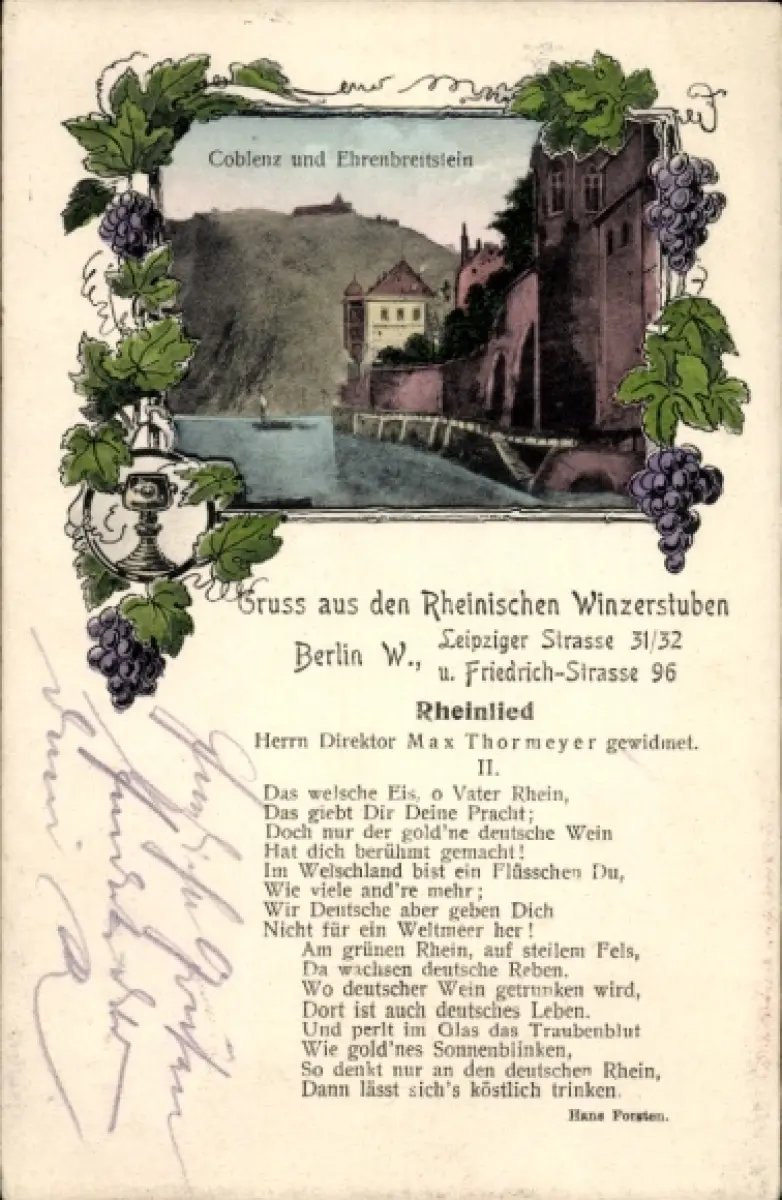 Coblenz und Ehrenbreitstein
Gruss aus den Rheinischen Winzerstuben
Berlin W., Leipziger Strasse 31/32
u. Friedrich-Strasse 96
Rheinlied
Herrn Direktor Max Thormeyer gewidmet.
II.
Das welsche Eis, o Vater Rhein,
Das giebt Dir Deine Pracht;
Doch nur der gold'ne deutsche Wein
Hat dich berühmt gemacht!
Im Welschland bist ein Flüsschen Du,
Wie viele and're mehr;
Wir Deutsche aber geben Dich
Nicht für ein Weltmeer her!
Am grünen Rhein, auf steilem Fels,
Da wachsen deutsche Reben.
Wo deutscher Wein getrunken wird,
Dort ist auch deutsches Leben.
Und perlt im Glas das Traubenblut
Wie gold'nes Sonnenblinken,
So denkt nur an den deutschen Rhein,
Dann lässt sich's köstlich trinken.
Hans Forsten.